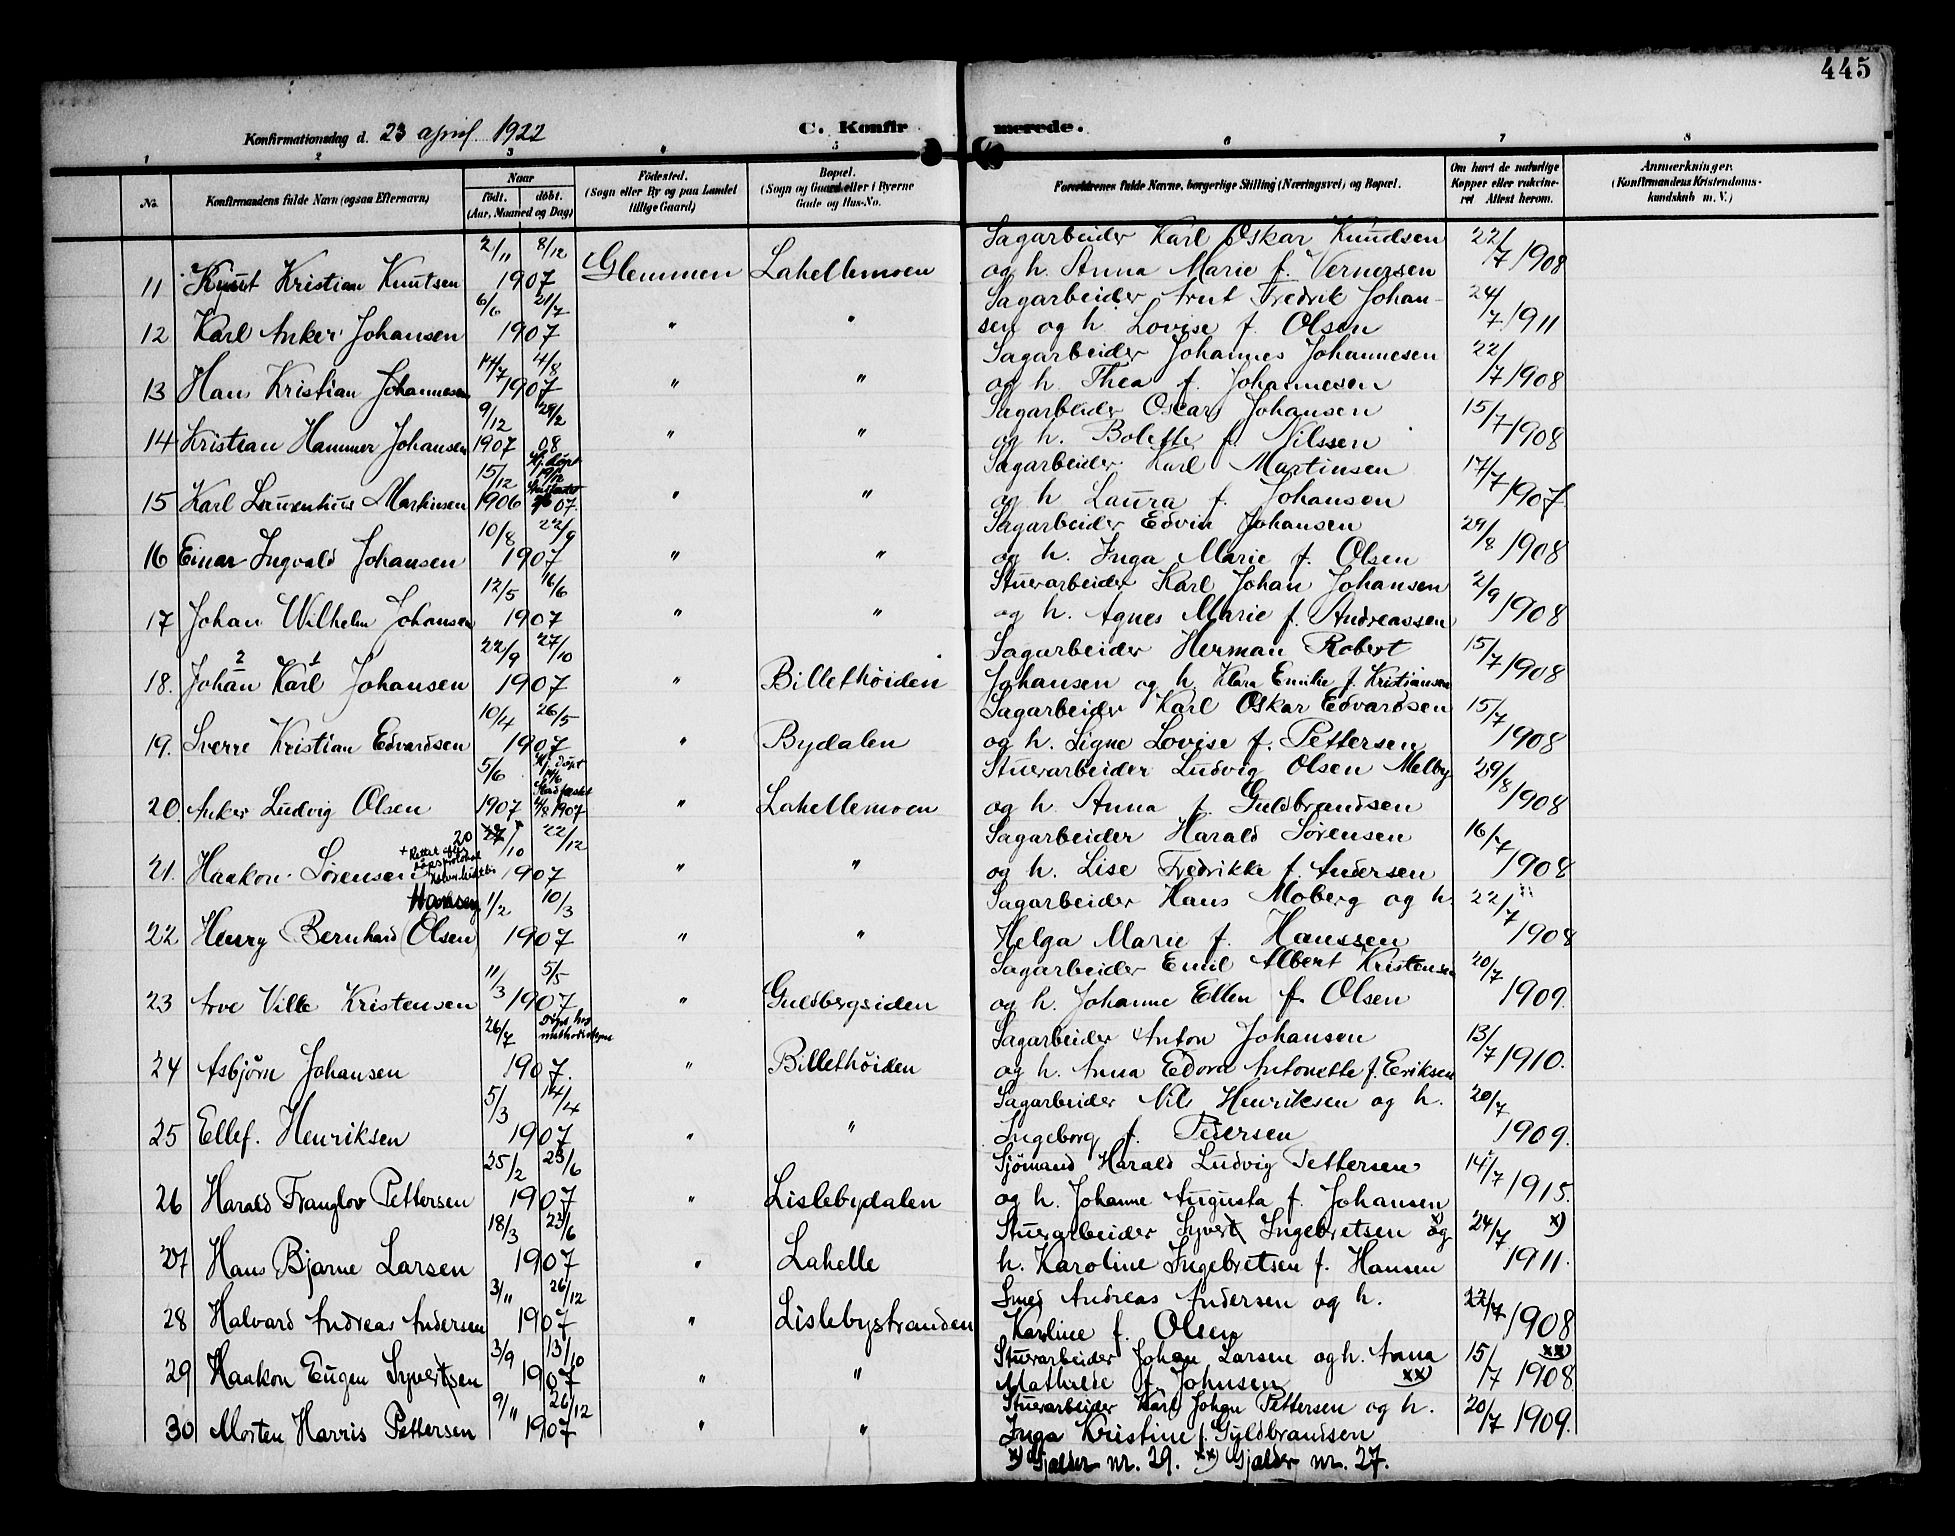 445
Konfirmationsdag d. 23 april 1922
C. Konfirmerede.
1 2 3 4 5 6 7 8
No.
Konfirmandens fulde Navn (ogsaa Efternavn)
Naar
født. døbt.
(Aar, Maaned og Dag)
Fødested.
(Sogn eller By og paa Landet
tillige Gaard)
Bopæl.
(Sogn og Gaard eller i Byerne
Gade og Hus-No.
Forældrenes fulde Navne, borgerlige Stilling (Næringsvei) og Bopæl.
Om havt de naturlige
Kopper eller vaksine-
ret Attest herom.
Anmærkninger.
(Konfirmandens Kristendoms-
kundskab m. V.)
2/11 8/12 Sagarbeider Karl Oskar Knudsen 22/7
11 Knut Kristian Knutsen 1907 Glemmen Lahellemoen og h. Anna Marie f. Vernersen 1908
6/6 21/7 Sagarbeider Arnt Fredrik Johan- 24/7
12 Karl Anker Johansen 1907 " " sen og h. Lovise f. Olsen 1911
14/7 4/8 Sagarbeider Johannes Johannesen 22/7
13 Hans Kristian Johannesen 1907 " " og h. Thea f. Johannesen 1908
9/12 29/2 Sagarbeider Oscar Johansen 15/7
14 Kristian Hammer Johansen 1907 08 " " og h. Bolette f. Nilssen 1908
15/12 Hj. døpt Sagarbeider Karl Martinsen 17/7
15 Karl Laurentius Martinsen 1906 07. " " og h Laura f. Johansen 1907.
10/8 22/9 Sagarbeider Edvin Johansen 29/8
16 Einar Ingvald Johansen 1907 " " og h. Inga Marie f. Olsen 1908
12/5 16/6 Stuerarbeider Karl Johan Johansen 2/9
17 Johan Wilhelm Johansen 1907 " " og h. Agnes Marie f. Andreassen 1908
2 1 22/9 27/10 Sagarbeider Herman Robert 15/7
18. Johan Karl Johansen 1907 " Billethöiden Johansen og h Klara Emilie f. Kristiansen 1908
10/4 26/5 Sagarbeider Karl Oskar Edvardsen 15/7
19. Sverre Kristian Edvardsen 1907 " Bydalen og h. Signe Lovise f. Pettersen 1908
5/6 Hj. døpt Stuerarbeider Ludvig Olsen Melby 29/8
20. Anker Ludvig Olsen 1907 4/8 1907 " Lahellemoen og h. Anna f. Guldbrandsen 1908
20 /10 22/12 Sagarbeider Harald Sørensen 16/7
+ Rettet efter
21. Haakon Sørensen 1907 " " og h. Lise Fredrikke f. Andersen 1908
Hansen 1/2 10/3 Sagarbeider Hans Moberg og h. 22/7
22 Henry Bernhard (Olsen) 1907 " " Helga Marie f. Hanssen 1908
11/3 5/5 Sagarbeider Emil Albert Kristensen 20/7
23 Arve Ville Kristensen 1907 " Guldbergsiden og h. Johanne Ellen f. Olsen 1909.
26/7 Døpt hos Sagarbeider Anton Johansen 13/7
24 Asbjørn Johansen 1907. " Billethöiden og h. Anna Edora Antonette f. Eriksen 1910.
5/3 14/4 Sagarbeider Nils Henriksen og h. 20/7
25 Ellef. Henriksen 1907 " " Ingeborg f. Pedersen 1909.
25/2 23/6 Sjömand Harald Ludvig Pettersen 14/7
26 Harald Franglov Pettersen 1907 " Lislebydalen og h. Johanne Augusta f. Johansen 1915.
18/3 23/6 Stuerarbeider Syvert Ingebretsen x) og 24/7 x)
27 Hans Bjarne Larsen 1907 " Lahelle h. Karoline Ingebretsen f. Hansen 1911.
3/11 26/12 Smed Andreas Andersen og h. 22/7
28 Halvard Andreas Andersen 1907 " Lislebystranden Karline f. Olsen 1908
3/9 13/10 Stuerarbeider Johan Larsen og h. Anna 15/7 xx)
29 Haakon Eugen Syvertsen 1907 " " Mathilde f. Johnsen xx) 1908
9/11 26/12 Stuerarbeider Karl Johan Pettersen og h. 20/7
30 Morten Harris Pettersen 1907 " " Inga Kristine f. Gyldbrandsen 1909.
x) Gjælder nr. 29. xx) Gjælder nr. 27.